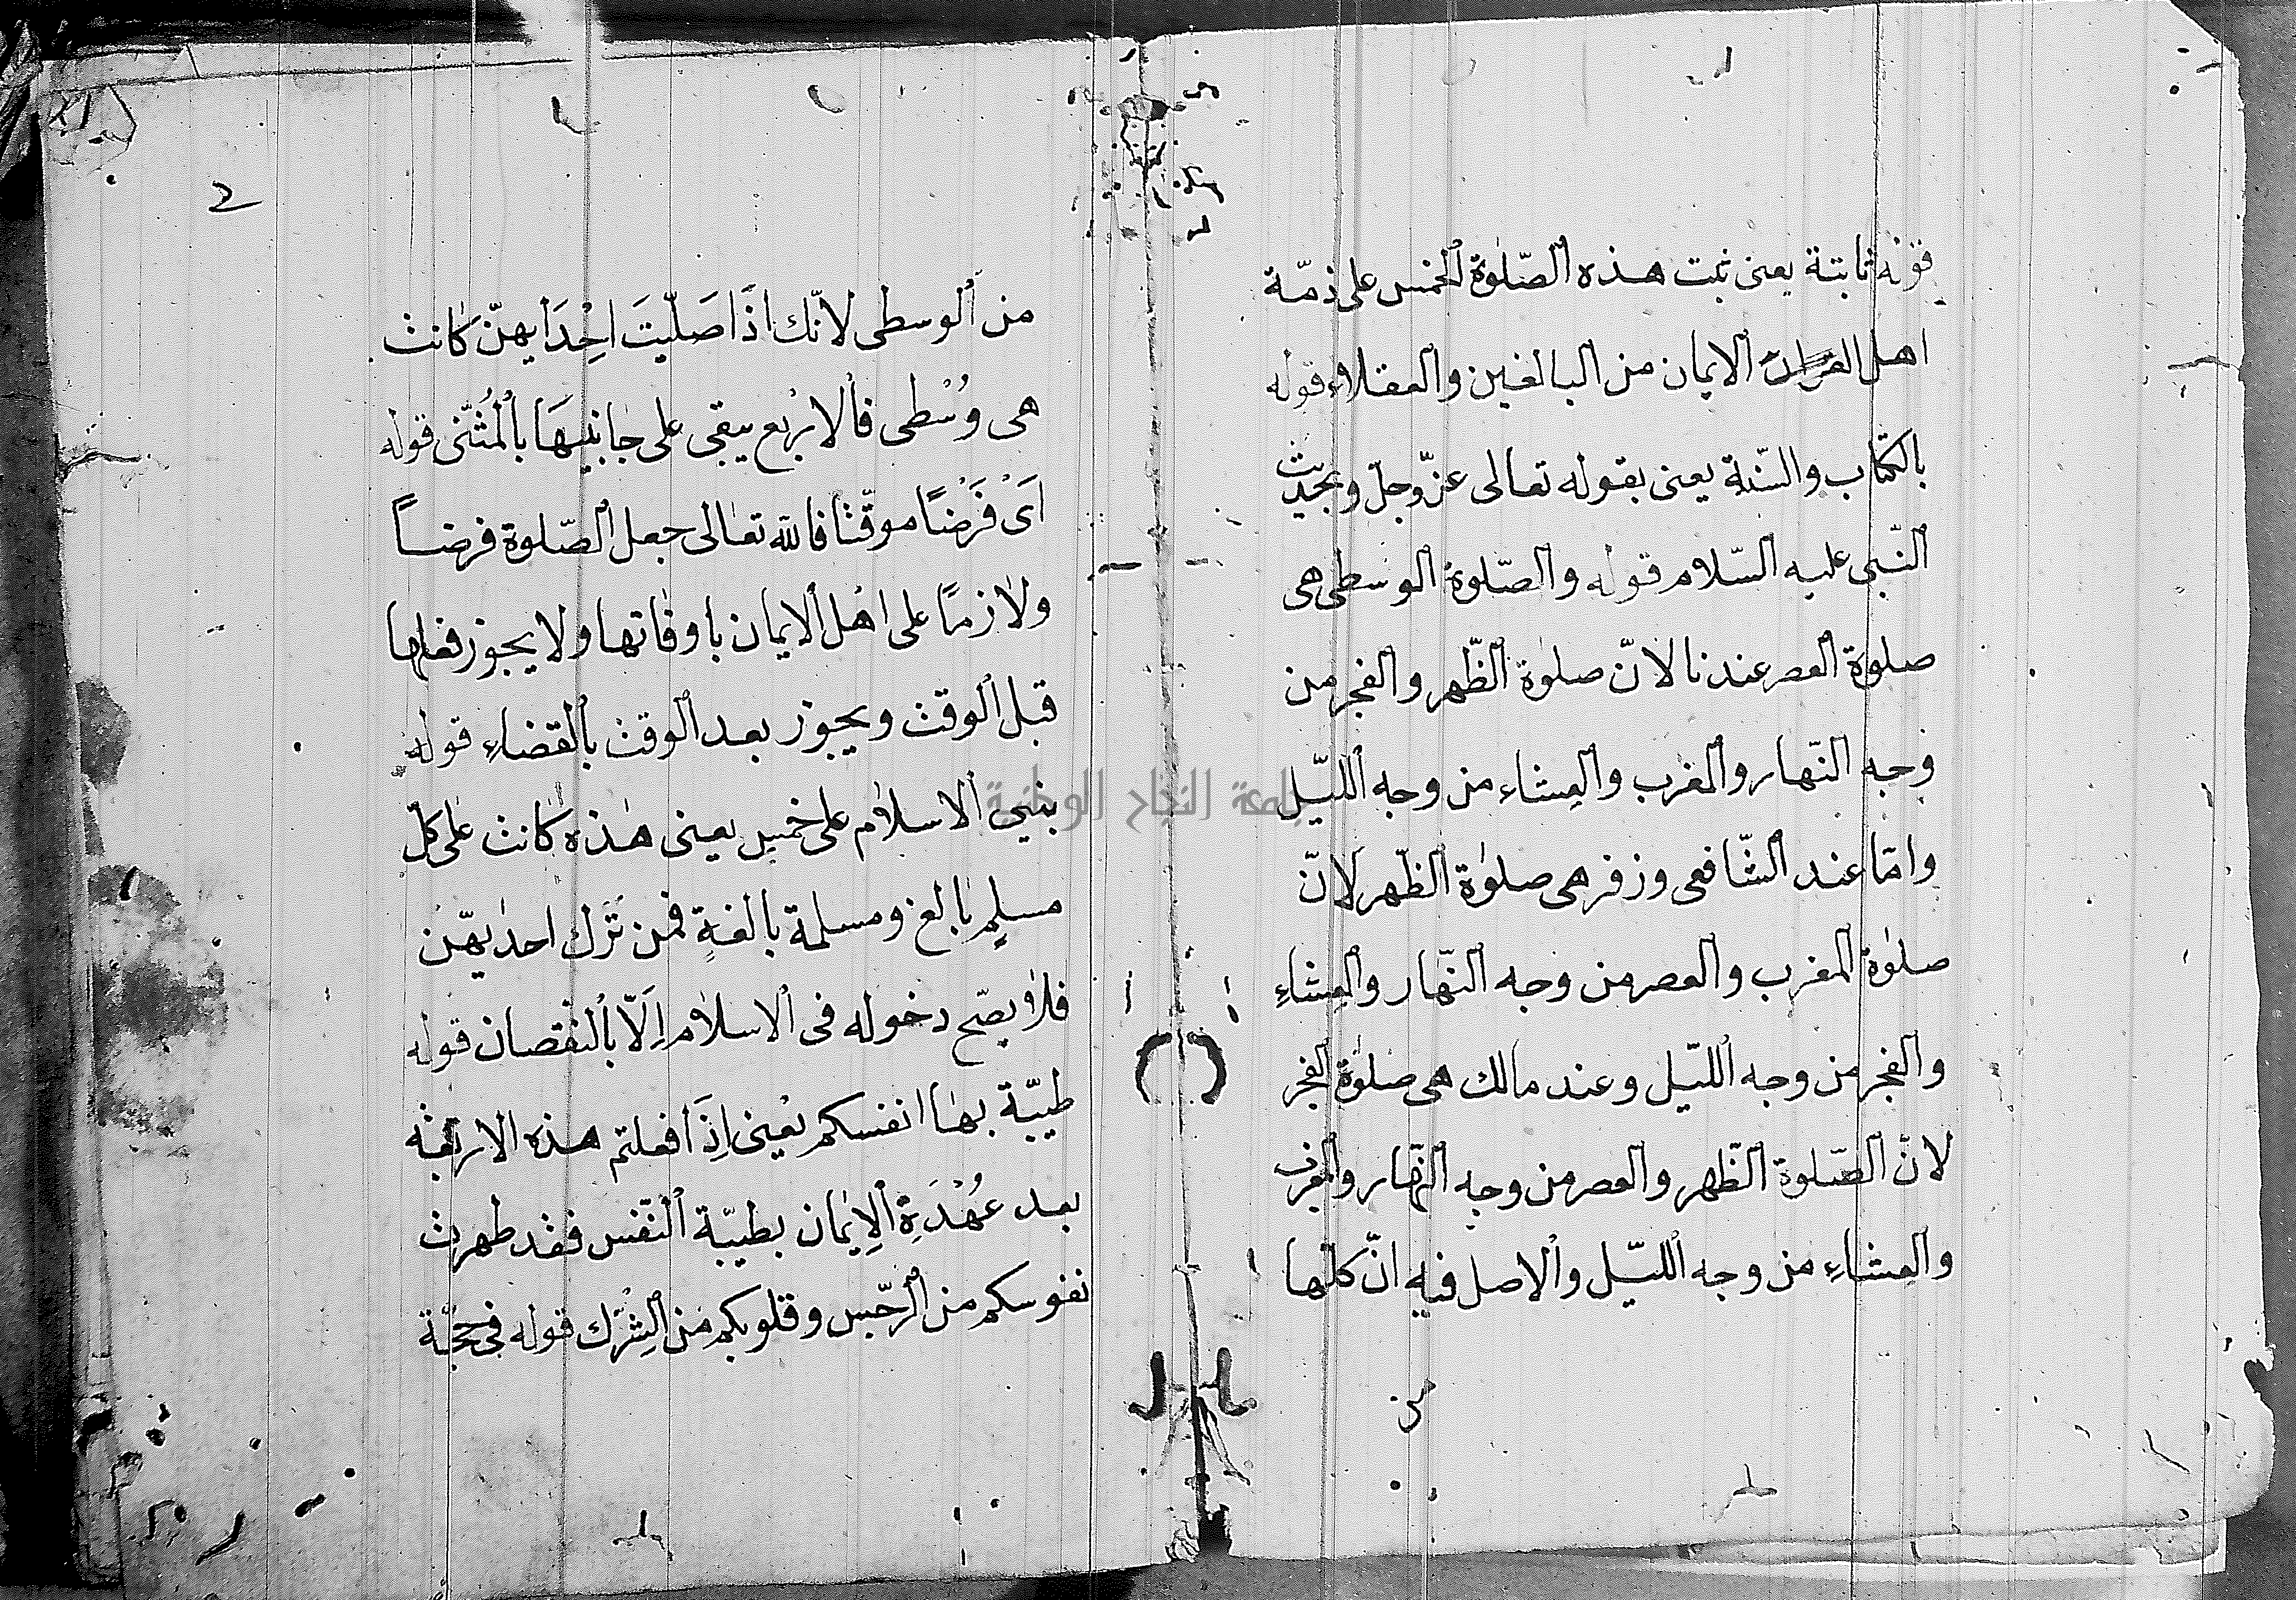 قوله ثابتة يعنى ثبت هذه الصّلوة الخمس على ذمّة
اهل الايمان من البالغين والعقلاء قوله
بالكتاب والسّنة يعنى بقوله تعالى عزّ وجلّ وبحديث
النّبى عليه السّلام قوله والصّلوة الوسطى هى
صلوة العصر عندنا لانّ صلوة الظّهر والفجر من
وجه النّهار والمغرب والعشاء من وجه اللّيل
وامّا عند الشّافعى وزفر هى صلوة الظّهر لانّ
صلوة المغرب والعصر من وجه النّهار والعشاءِ
والفجر من وجه اللّيل وعند مالك هى صلوة الفجر
لانّ الصّلوة الظّهر والعصر من وجه النّهار والمغرب
والعشاءِ من وجه اللّيل والاصل فيه انّ كلّها
2
من الوسطى لانّك اذَا صَلّيتَ اِحْدَايهنّ كانت
هى وُسْطى فالاربع يبقى على جانبيهَا بالمُثنّى قوله
اَىْ فَرْضًا موقّتا فاللّه تعالى جعل الصّلوة فرضاً
ولازمًا على اهل الايمان باوقاتها ولا يجوز فعلها
قبل الوقت ويجوز بعد الوقت بالقضاءِ قوله
بنى الاسلام على خمسٍ يعنى هذه كانت على كلّ
مسلمٍ بالغ ومسلمة بالغةٍ فمن تَرك احديهنّ
فلا يصّح دخوله فى الاسلام اِلّا بالنقصان قوله
طيّبة بها انفسكم يعنى اِذَا فعلتم هذه الاربعة
بعد عُهْدَةِ الاِيمان بطيبّة النّفس فقد طهرت
نفوسكم من الرّجس وقلوبكم من الشِرْك قوله فى حجّة
جامعة النجاح الوطنية